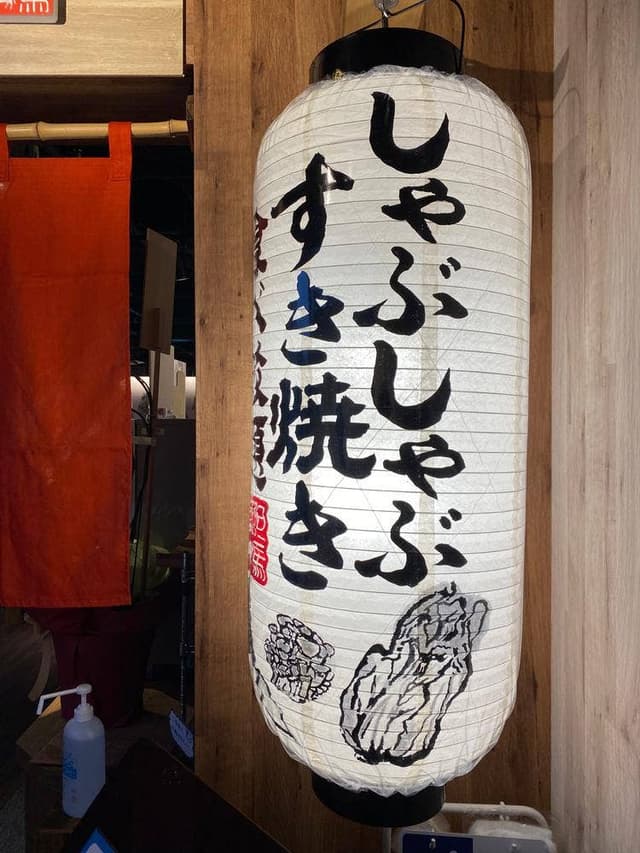 しゃぶしゃぶ
すき焼き